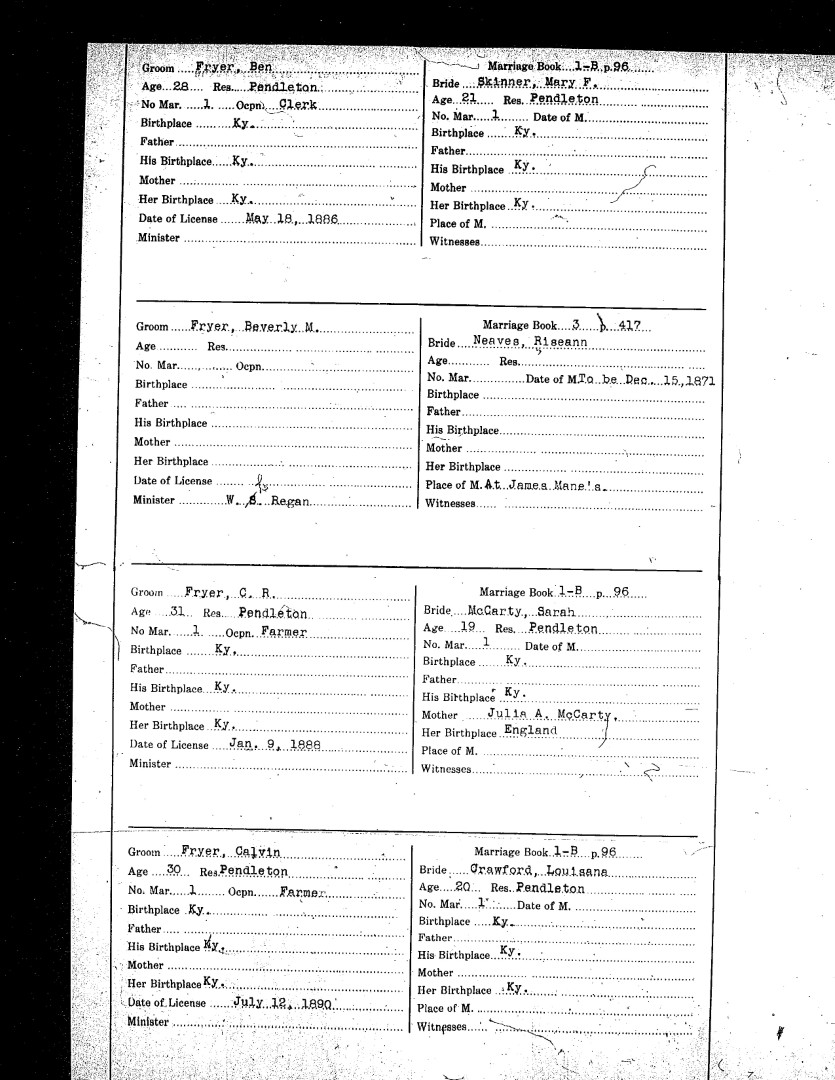 Groom Fryer, Ben
Age 28 Res. Pendleton
No Mar. 1 Ocpn. Clerk
Birthplace Ky.
Father
His Birthplace Ky.
Mother
Her Birthplace Ky.
Date of License May 18, 1886
Minister
Marriage Book 1-B p. 96
Bride Skinner, Mary F.
Age 21 Res. Pendleton
No. Mar. 1 Date of M.
Birthplace Ky.
Father
His Birthplace Ky.
Mother
Her Birthplace Ky.
Place of M.
Witnesses
Groom Fryer, Beverly M.
Age Res.
No. Mar. Ocpn.
Birthplace
Father
His Birthplace
Mother
Her Birthplace
Date of License
Minister W. S. Regan
Marriage Book 3 p. 417
Bride Neaves, Riseann
Age Res.
No. Mar. Date of M. To be Dec. 15, 1871
Birthplace
Father
His Birthplace
Mother
Her Birthplace
Place of M. At James Mane's.
Witnesses
Groom Fryer, C. R.
Age 31 Res. Pendleton
No Mar. 1 Ocpn. Farmer
Birthplace Ky.
Father
His Birthplace Ky.
Mother
Her Birthplace Ky.
Date of License Jan. 9, 1888
Minister
Marriage Book 1-B p. 96
Bride McCarty, Sarah
Age 19 Res. Pendleton
No. Mar. 1 Date of M.
Birthplace Ky.
Father
His Birthplace Ky.
Mother Julia A. McCarty.
Her Birthplace England
Place of M.
Witnesses
Groom Fryer, Calvin
Age 30 Res. Pendleton
No. Mar. 1 Ocpn. Farmer
Birthplace Ky.
Father
His Birthplace Ky.
Mother
Her Birthplace Ky.
Date of License July 12, 1890
Minister
Marriage Book 1-B p. 96
Bride Crawford, Louisana
Age 20 Res. Pendleton
No. Mar. 1 Date of M.
Birthplace Ky.
Father
His Birthplace Ky.
Mother
Her Birthplace Ky.
Place of M.
Witnesses